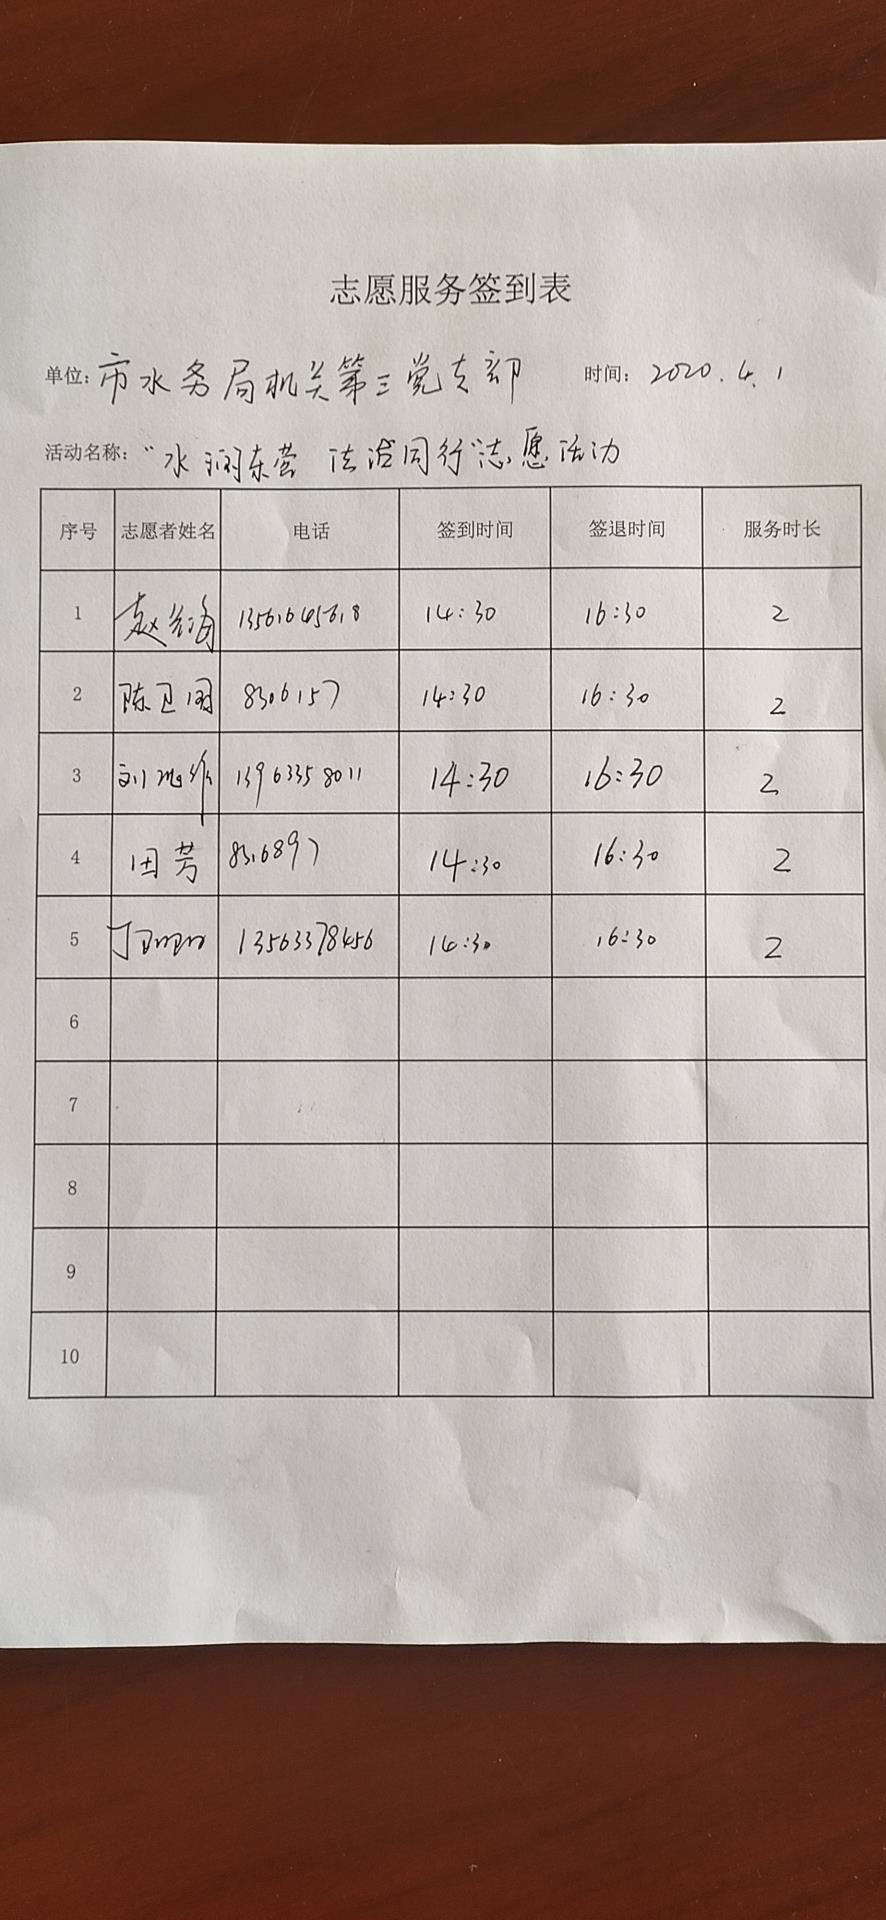 志愿服务签到表
单位: 市水务局机关第三党支部 时间: 2020.4.1
活动名称: "水润东营 法治同行"志愿活动
序号 志愿者姓名 电话 签到时间 签退时间 服务时长
1 13561645618 14:30 16:30 2
2 陈卫国 8306157 14:30 16:30 2
3 13963358011 14:30 16:30 2
4 田芳 8316897 14:30 16:30 2
5 13563378456 14:30 16:30 2
6
7
8
9
10